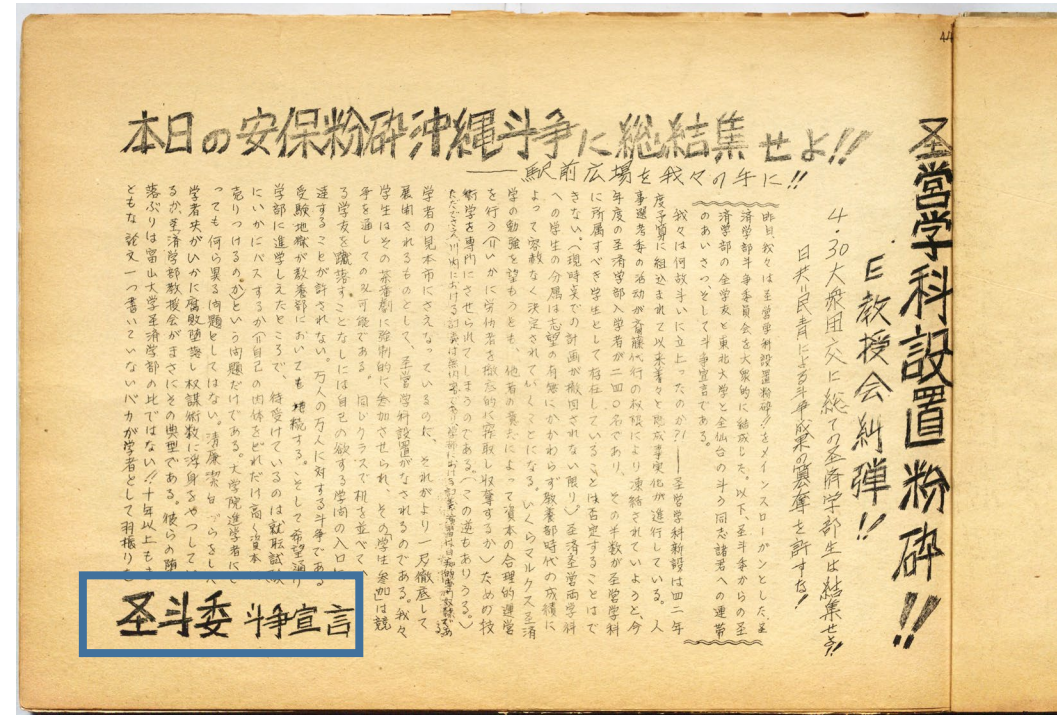 44
圣営学科設置粉砕!!
E教授会糾弾!!
4・30大衆団交に総ての圣済学部生は結集せよ!!
日共=民青による斗争成果の簒奪を許すな!
本日の安保粉砕沖縄斗争に総結集せよ!!
——駅前広場を我々の手に!!
昨日、我々は圣営学科設置粉砕!をメインスローガンとした圣
済学部斗争委員会を大衆的に結成した。以下、圣斗委からの圣
済学部の全学友と東北大学と全仙台の斗う同志諸君への連帯
のあいさつ、そして斗争宣言である。
我々は何故斗いに立上ったのか?!——圣営学科新設は四二年
度予算に組込まれて以来着々と既成事実化が進行している。人
事選考委の活動が斎藤代行の权限により凍結されていようと、今
年度の圣済学部入学者が二四〇名であり、その半数が圣営学科
に所属すべき学生として存在していることは否定することはで
きない。(現時点での計画が撤回されない限り)圣済圣営両学科
への学生の分属は志望の有無にかかわらず教養部時代の成績に
よって容赦なく決定されていくことになる。いくらマルクス圣済
学の勉強を望もうとも、他者の責によって資本の合理的運営
を行う(いかに労仂者を徹底的に搾取し収奪するか)ための技
術学を専門にさせられてしまうのである。(この逆もありうる。)
ただでさえ川内における
学者の見本市にさえなっているのに、それがより一層徹底して
展開されるものとして、圣営学科設置がなされるのである。我々
学生はその茶番劇に強制的に参加させられ、その学生参加は競
争を通してのみ可能である。同じクラスで机を並べて
る学友を蹴落すことなしには自己の欲する学問の入口に
達することが許されない。万人の万人に対する斗争である
受験地獄が教養部においても継続する。そして希望通り
学部に進学しえたところで、待受けているのは就転試験
にいかにパスするか(自己の肉体をどれだけ高く資本
売りつけるのか)という問題だけである。大学院進学者にと
っても何ら異る問題としてはない。清廉潔白づらをした
学者共がいかに腐敗堕落し权謀術数に浮身をやつしてい
るか、圣済学部教授会がまさにその典型である。彼らの堕
落ぶりは富山大学圣済学部の比ではない!!十年以上もま
ともな論文一つ書いていないバカが学者として羽振りを
圣斗委 斗争宣言